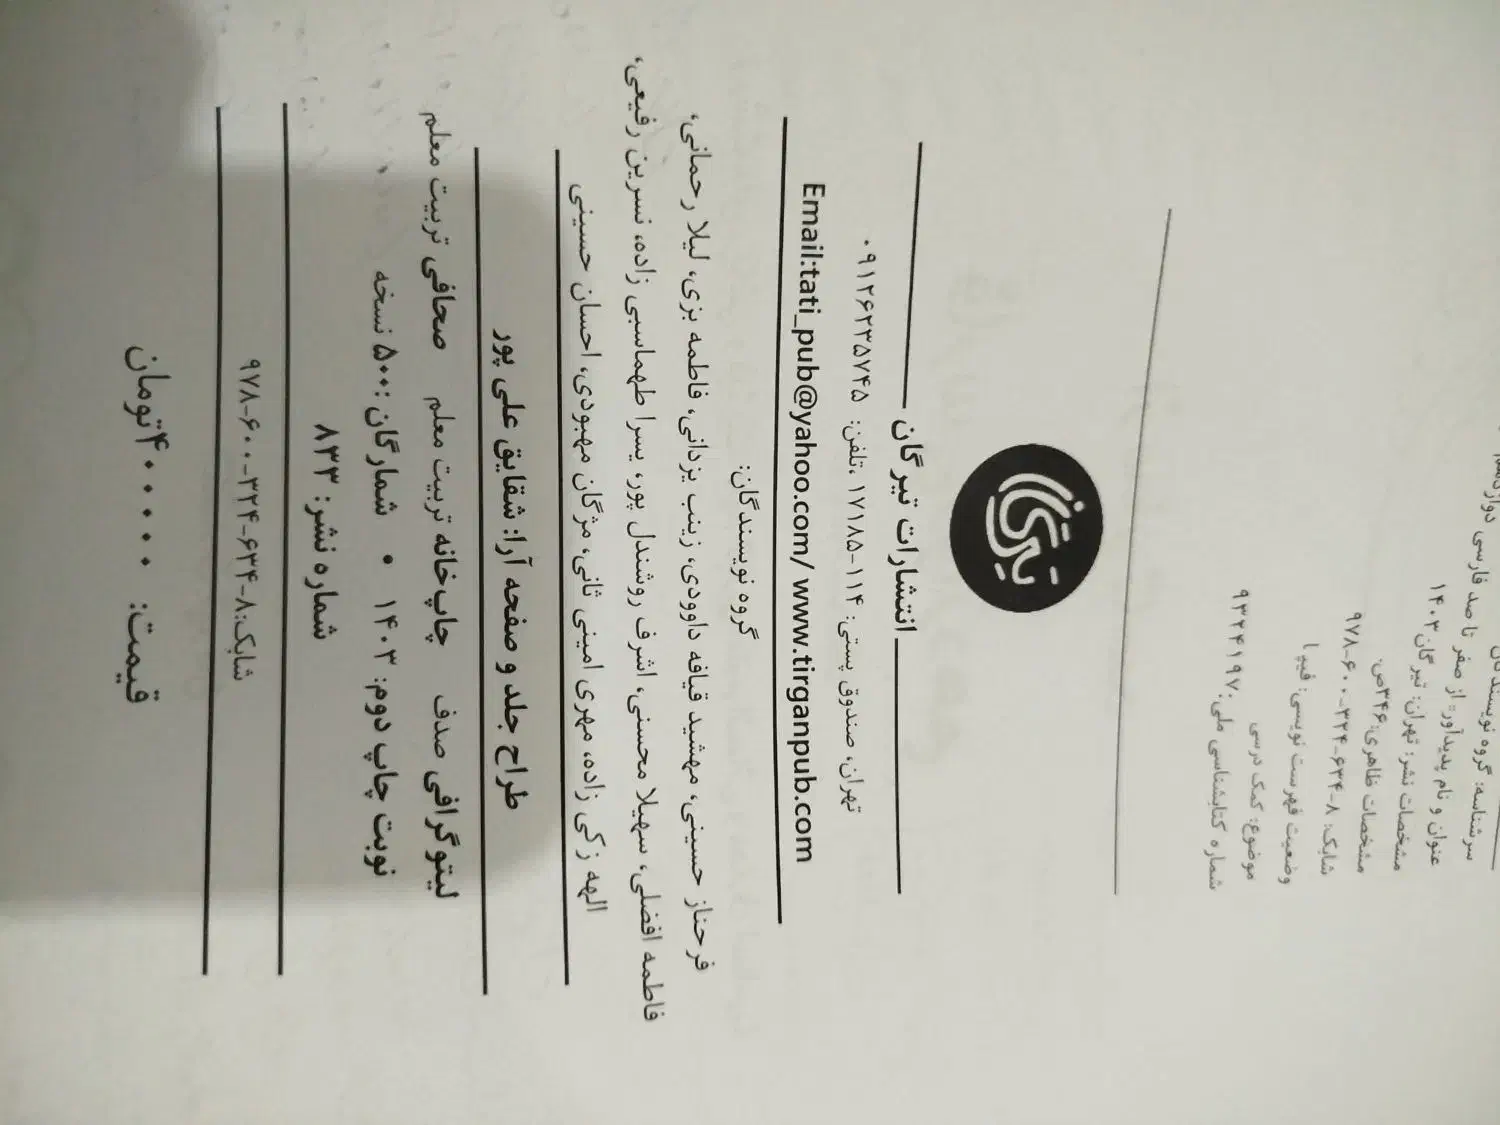 سرشناسه: گروه نویسندگان
عنوان و نام پدیدآور: از صفر تا صد فارسی دوازدهم
مشخصات نشر: تهران: تیرگان ۱۴۰۳
مشخصات ظاهری: ۳۴۶ص.
شابک: ۸-۶۳۴-۳۲۴-۶۰۰-۹۷۸
وضعیت فهرست نویسی: فیپا
موضوع: کمک درسی
شماره کتابشناسی ملی: ۹۳۲۴۱۹۷
تیرگان
انتشارات تیرگان
تهران، صندوق پستی: ۱۱۴-۱۷۱۸۵ ،تلفن: ۰۹۱۲۶۲۳۵۷۴۵
Email:tati_pub@yahoo.com/ www.tirganpub.com
گروه نویسندگان:
فرحناز حسینی، مهشید قیافه داوودی، زینب یزدانی، فاطمه بزی، لیلا رحمانی،
فاطمه افضلی، سهیلا محسنی، اشرف روشندل پور، یسرا طهماسبی زاده، نسرین رفیعی،
الهه زکی زاده، مهری امینی ثانی، مژگان مهبودی، احسان حسینی
طراح جلد و صفحه آرا: شقایق علی پور
لیتوگرافی صدف چاپ‌خانه تربیت معلم صحافی تربیت معلم
نوبت چاپ دوم: ۱۴۰۳ • شمارگان: ۵۰۰ نسخه
شماره نشر: ۸۳۳
شابک: ۸-۶۳۴-۳۲۴-۶۰۰-۹۷۸
قیمت: ۴۰۰۰۰۰تومان